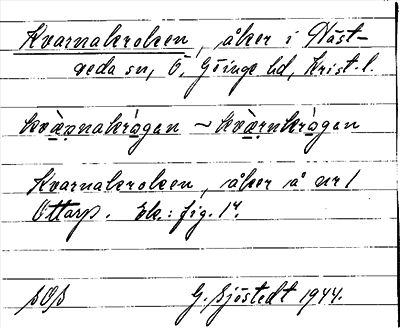 Kvarnakroken, åker i Häst-
veda sn, Ö. Göinge hd, Krist. l.
kvæ̀ṛnakrågan ~ kvæ̀ṛnkrågan
Kvarnakroken, åker å nr 1
Ottarp. Ek.: fig. 14.
SOS G. Sjöstedt 1944.